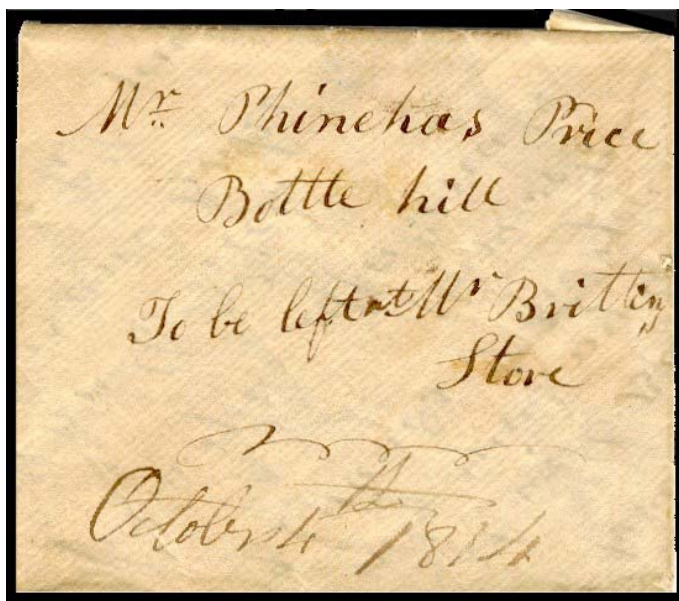 Mr. Phinehas Price
Bottle hill
To be left at Mr Brittin,s
Store
October 4th 1814